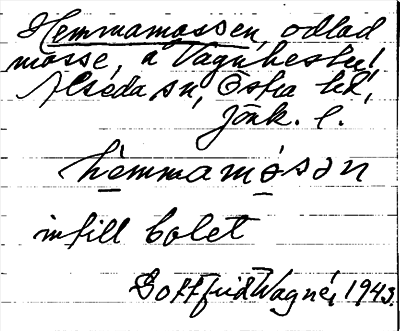 Hemmamossen, odlad
mosse, å Vagnhester!
Alseda sn, Östra hd,
Jönk. l.
hèmmamósən
intill bolet
Gottfrid Wagnér, 1943.